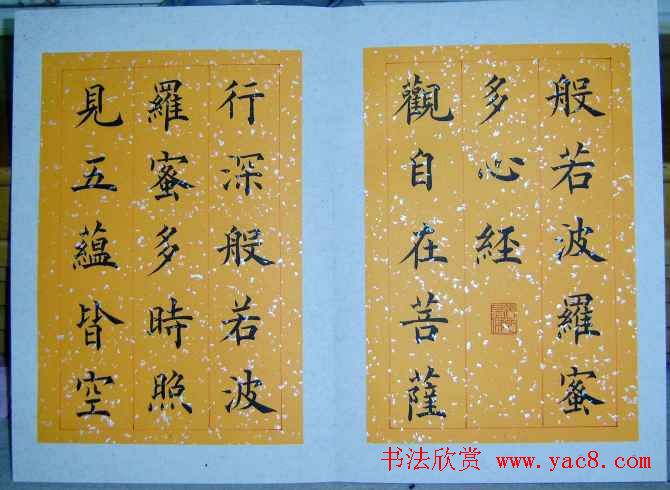 般若波羅蜜
多心經
觀自在菩薩
行深般若波
羅蜜多時照
見五蘊皆空
书法欣赏 www.yac8.com